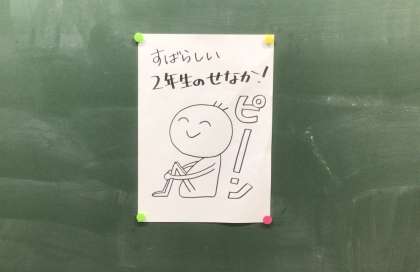 すばらしい
2年生のせなか!
ピーン